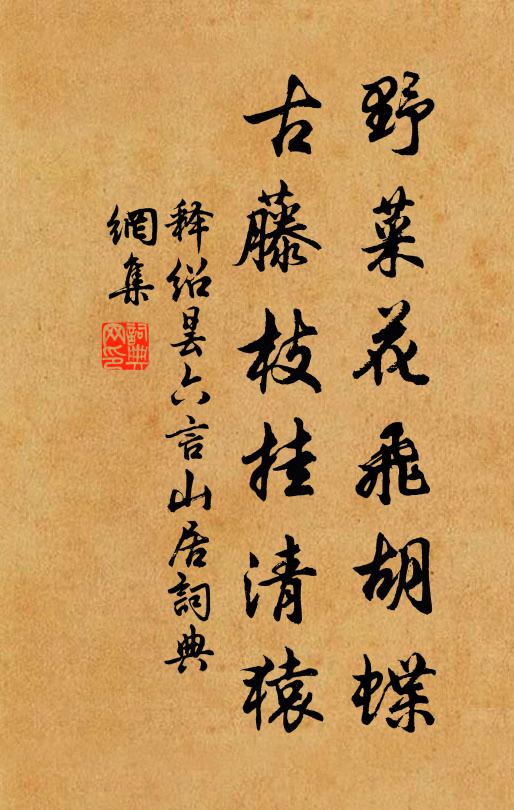 野菜花飛胡蝶
古藤枝挂清猿
释绍昙六言山居詞典
網集
詞典
网印